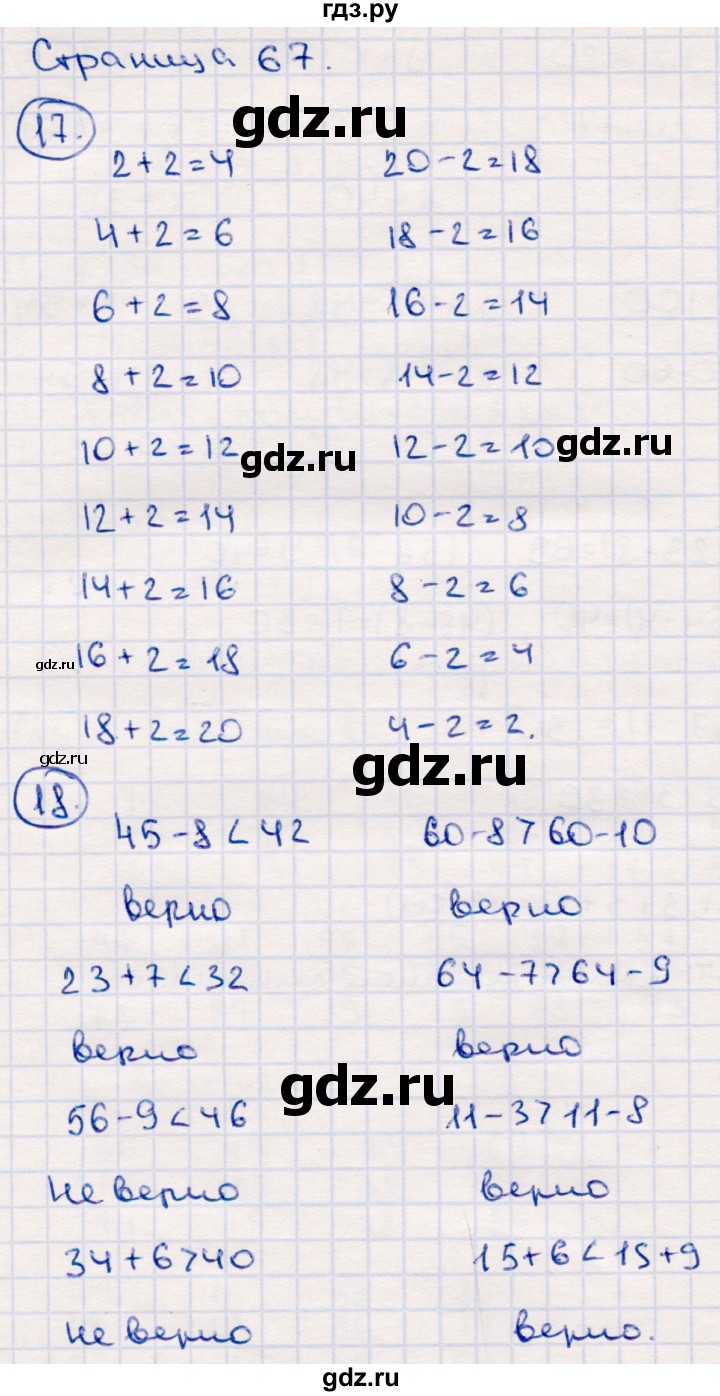 гдз.ру
Страница 67.
gdz.ru
17.
2+2=4 20-2=18
4+2=6 18-2=16
6+2=8 16-2=14
8+2=10 14-2=12
10+2=12 12-2=10
gdz.ru gdz.ru
12+2=14 10-2=8
14+2=16 8-2=6
gdz.ru
16+2=18 6-2=4
18+2=20 4-2=2.
gdz.ru gdz.ru
18.
45-8<42 60-8>60-10
верно верно
23+7<32 64-7>64-9
верно верно
gdz.ru
56-9<46 11-3>11-8
не верно верно
34+6>40 15+6<15+9
не верно верно.
gdz.ru